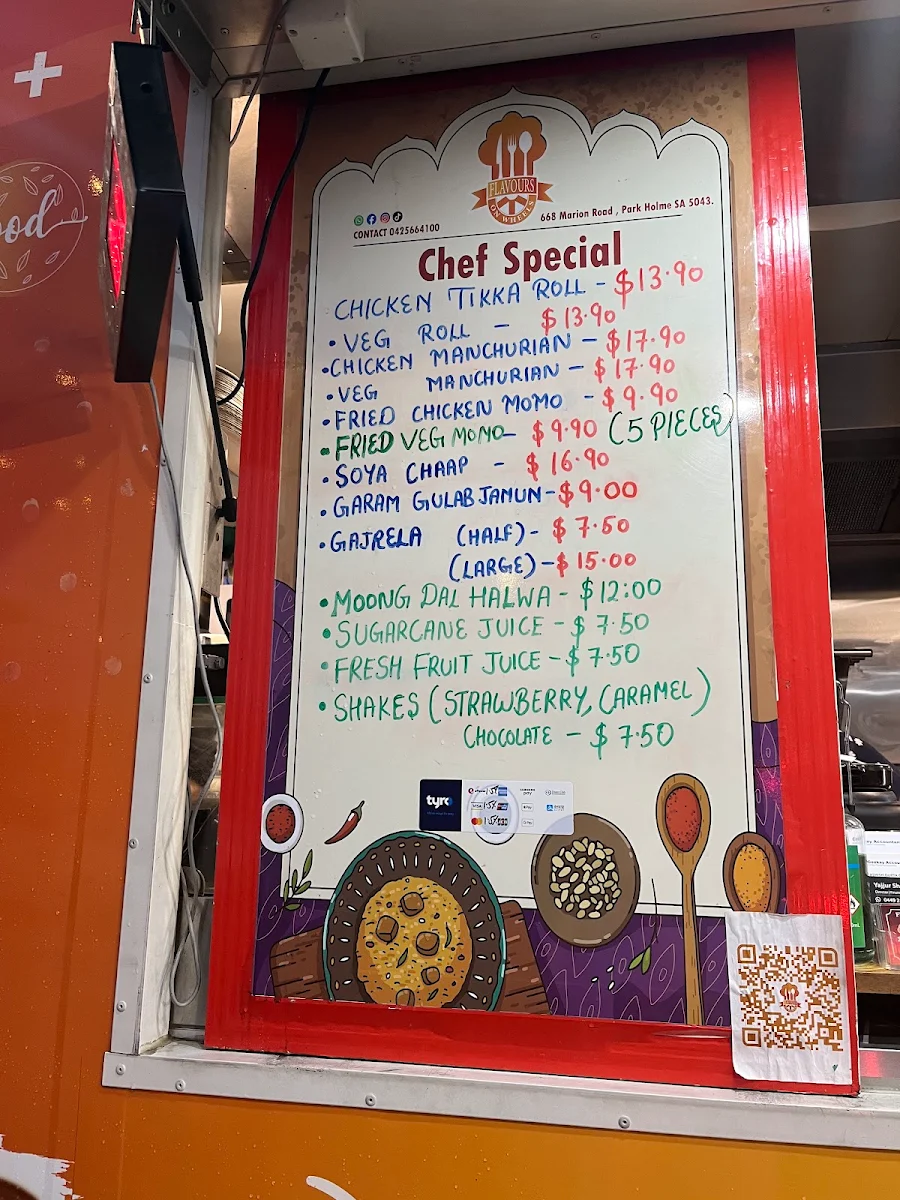 ood
FLAVOURS
ON WHEELS
CONTACT 0425664100
668 Marion Road , Park Holme SA 5043.
Chef Special
CHICKEN TIKKA ROLL - $13.90
• VEG ROLL - $13.90
• CHICKEN MANCHURIAN - $17.90
• VEG MANCHURIAN - $17.90
• FRIED CHICKEN MOMO - $9.90
• FRIED VEG MOMO - $9.90 (5 PIECES)
• SOYA CHAAP - $16.90
• GARAM GULAB JAMUN - $9.00
• GAJRELA (HALF) - $7.50
(LARGE) - $15.00
• MOONG DAL HALWA - $12:00
• SUGARCANE JUICE - $7.50
• FRESH FRUIT JUICE - $7.50
• SHAKES (STRAWBERRY, CARAMEL)
CHOCOLATE - $7.50
tyro
VISA
Yajjur Sha